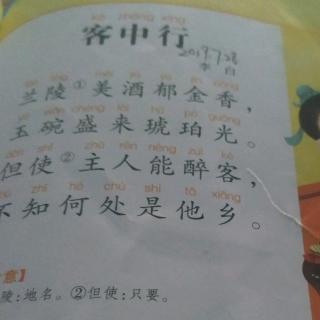 kè zhōng xíng
客中行
李白
měi jiǔ yù jīn xiāng
兰陵①美酒郁金香，
wǎn chéng lái hǔ pò guāng
玉碗盛来琥珀光。
shǐ zhǔ rén néng zuì kè
但使②主人能醉客，
zhī hé chù shì tā xiāng
不知何处是他乡。
意】
陵：地名。②但使：只要。